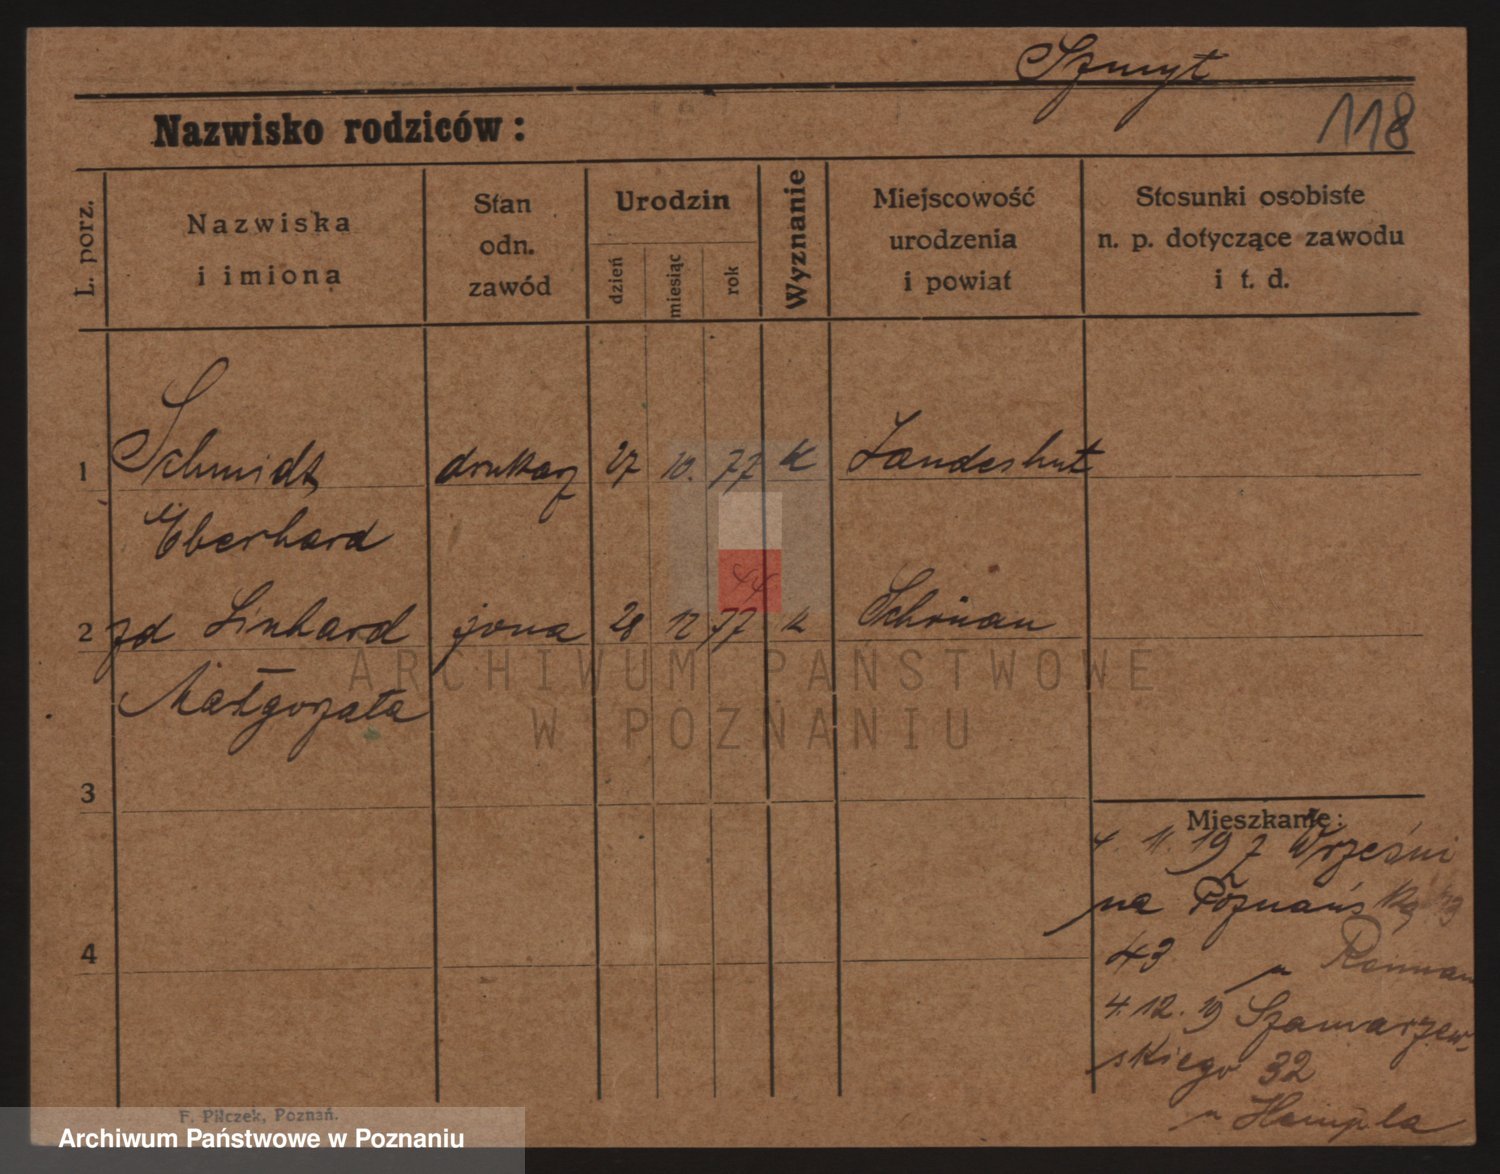 Szmyt
Nazwisko rodziców:
118
L. porz.
Nazwiska
i imiona
Stan
odn.
zawód
Urodzin
dzień
miesiąc
rok
Wyznanie
Miejscowość
urodzenia
i powiat
Stosunki osobiste
n. p. dotyczące zawodu
i t. d.
1 Schmidt drukarz 27 10. 77 k Landeshut
Eberhard
44
2 zd Linhard żona 28 12 77 k Schönau
Małgorzata
ARCHIWUM PAŃSTWOWE
W POZNANIU
3
Mieszkanie:
4. 11. 19 z Wrześni
na Poznańską
4
43 u
4. 12. 19 Szamarzew-
skiego 32
u Hempla
F. Pilczek, Poznań.
Archiwum Państwowe w Poznaniu